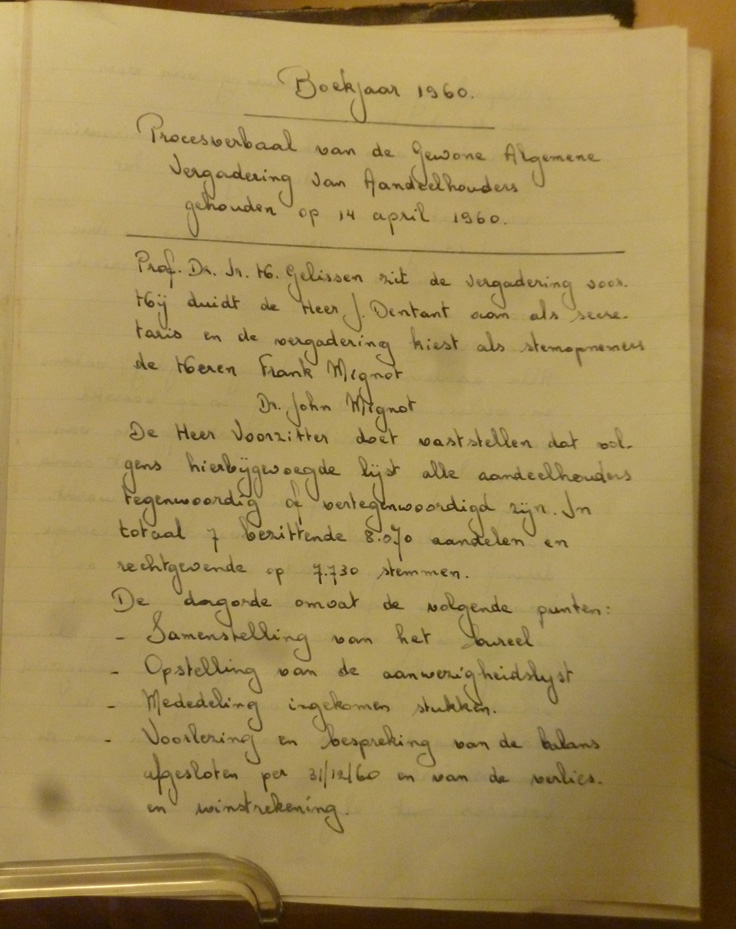 Boekjaar 1960.
Procesverbaal van de Gewone Algemene
Vergadering van Aandeelhouders
gehouden op 14 april 1960.
Prof. Dr. Ir. H. Gelissen zit de vergadering voor.
Hij duidt de Heer J. Dentant aan als secre-
taris en de vergadering kiest als stemopnemers
de Heren Frank Mignot
Dr. John Mignot
De Heer Voorzitter doet vaststellen dat vol-
gens hierbijgevoegde lijst alle aandeelhouders
tegenwoordig of vertegenwoordigd zijn. In
totaal 7 bezittende 8.070 aandelen en
rechtgevende op 7.730 stemmen.
De dagorde omvat de volgende punten:
- Samenstelling van het bureel
- Opstelling van de aanwezigheidslijst
- Mededeling ingekomen stukken.
- Voorlezing en bespreking van de balans
afgesloten per 31/12/60 en van de verlies-
en winstrekening.